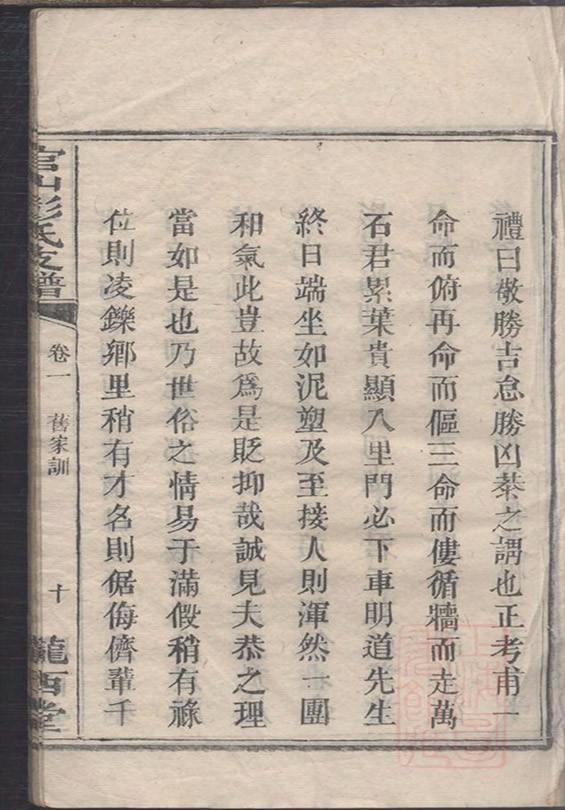 禮曰敬勝吉怠勝凶恭之謂也正考甫一
命而俯再命而傴三命而僂循牆而走萬
石君累葉貴顯入里門必下車明道先生
終日端坐如泥塑及至接人則渾然一團
和氣此豈故爲是貶抑哉誠見夫恭之理
當如是也乃世俗之情易于滿假稍有祿
位則凌鑠鄉里稍有才名則倨侮儕輩千
官山彭氏支譜
卷一
舊家訓
十
隴西堂